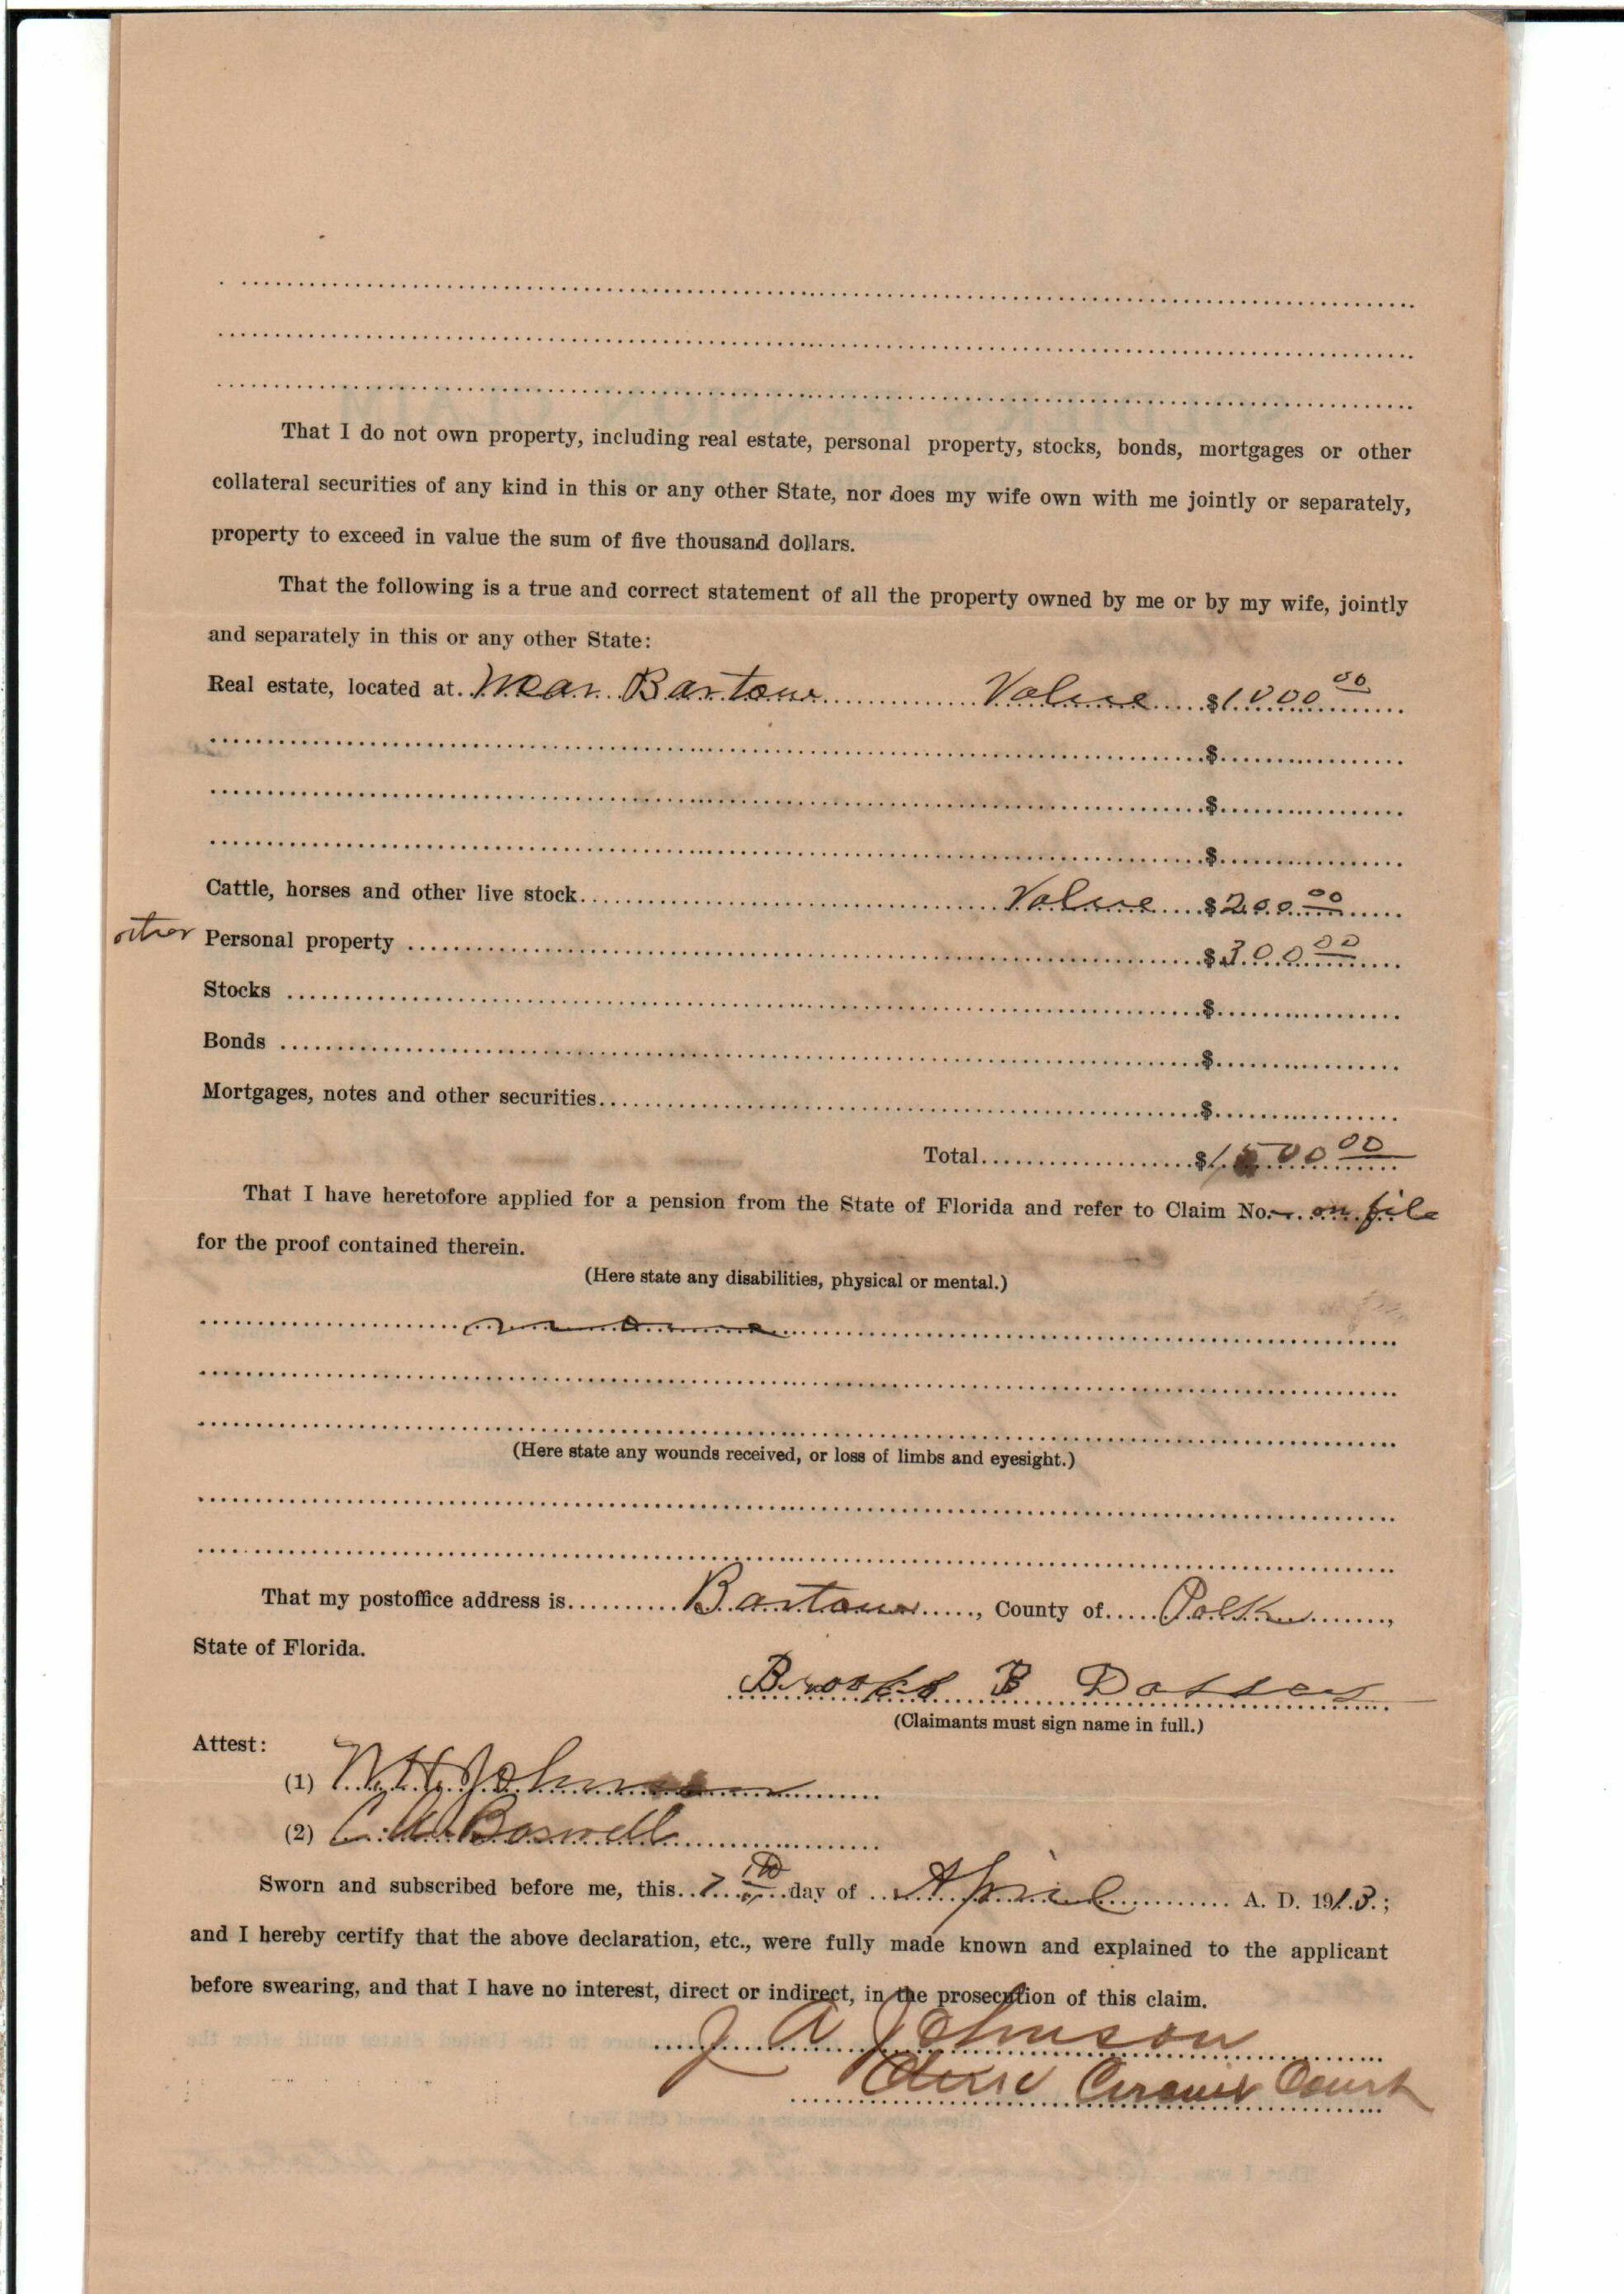 That I do not own property, including real estate, personal property, stocks, bonds, mortgages or other
collateral securities of any kind in this or any other State, nor does my wife own with me jointly or separately,
property to exceed in value the sum of five thousand dollars.
That the following is a true and correct statement of all the property owned by me or by my wife, jointly
and separately in this or any other State:
Real estate, located at. Near Bartow Value $1000 00
$
$
$
Cattle, horses and other live stock Value $200 00
other Personal property $300 00
Stocks $
Bonds $
Mortgages, notes and other securities $
Total $1500 00
That I have heretofore applied for a pension from the State of Florida and refer to Claim No. on file
for the proof contained therein.
(Here state any disabilities, physical or mental.)
(Here state any wounds received, or loss of limbs and eyesight.)
That my postoffice address is Bartow, County of Polk,
State of Florida.
Brooks B
(Claimants must sign name in full.)
Attest:
(1) Johnson
(2) Boswell
Sworn and subscribed before me, this 7th day of April A. D. 1913;
and I hereby certify that the above declaration, etc., were fully made known and explained to the applicant
before swearing, and that I have no interest, direct or indirect, in the prosecution of this claim.
J A Johnson
Clerk Circuit Court